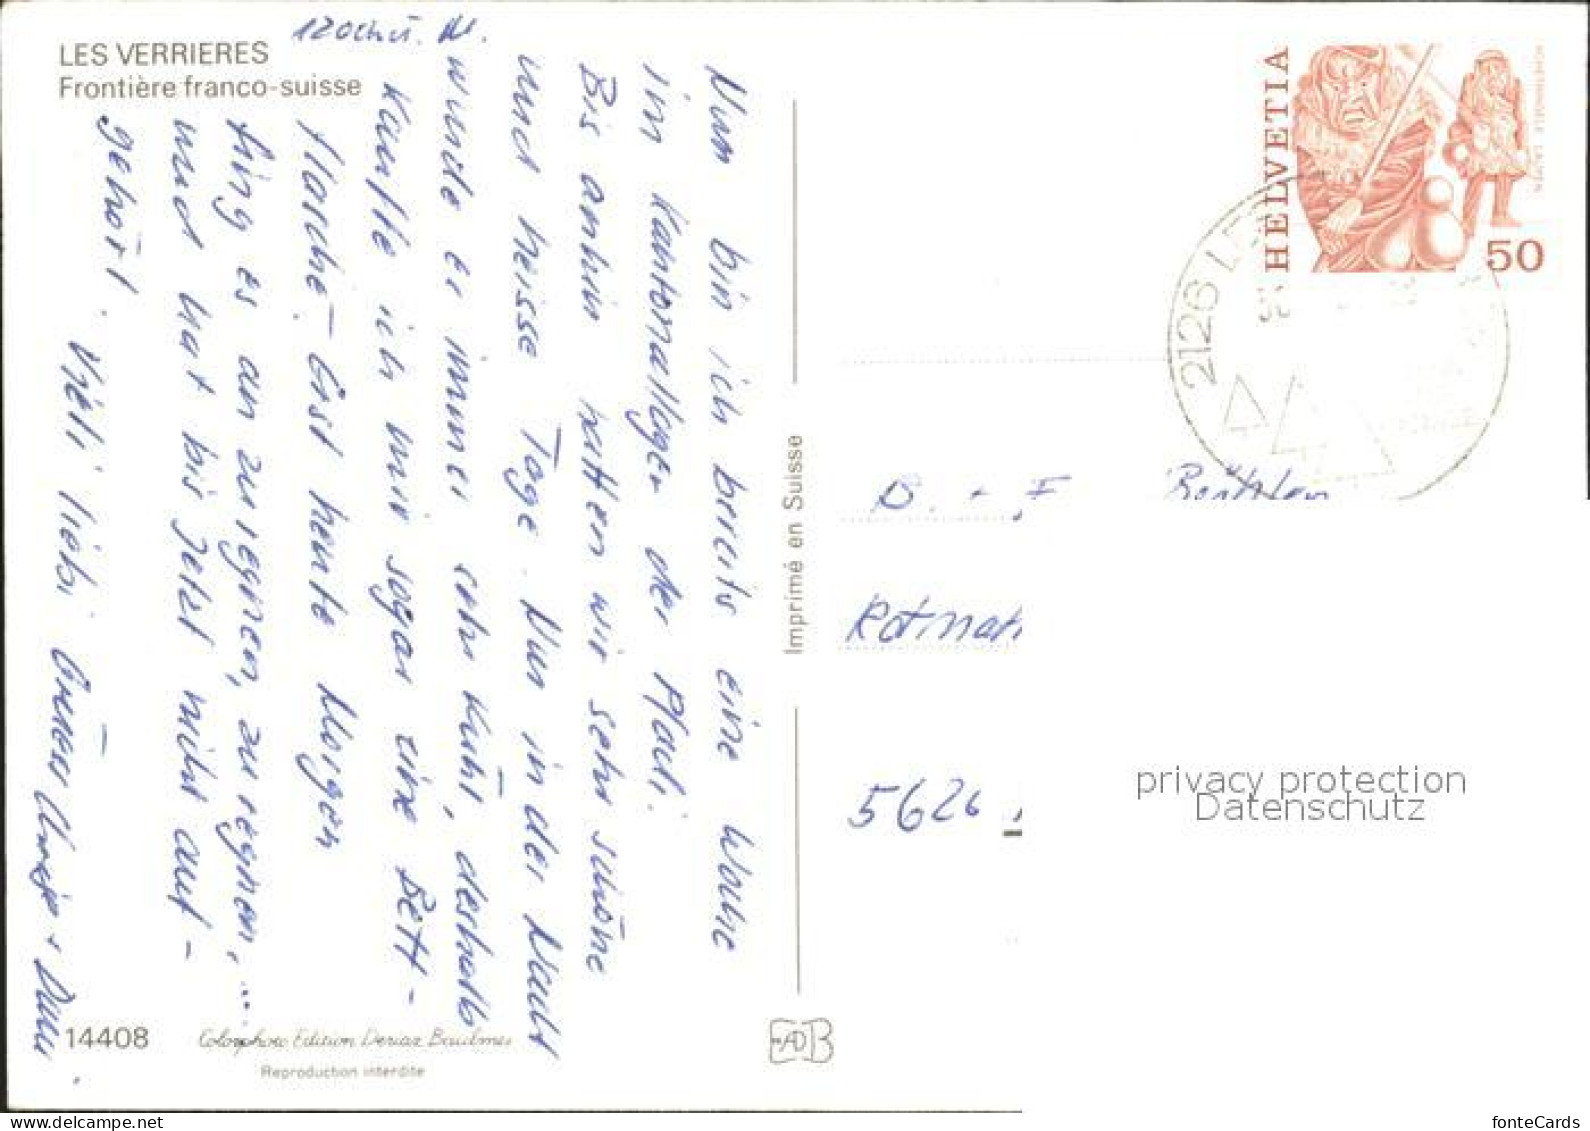 LES VERRIERES
Frontière franco-suisse
Nun bin ich bereits eine Woche
im Kantonallager der Pfadi.
Bis anhin hatten wir sehr schöne
und heisse Tage. Nur in der Nacht
wurde es immer sehr kühl, deshalb
kaufte ich mir sogar eine Bett-
flasche. Erst heute Morgen
fing es an zu regnen, zu regnen, ...
und hat bis jetzt nicht auf-
gehört.
Vieli liebi Grüass
14408
Colorphoto Edition Deriaz Baulmes
Reproduction interdite
Imprimé en Suisse
HELVETIA
50
2126 L
B. + F.
5626
privacy protection
Datenschutz
fonteCards